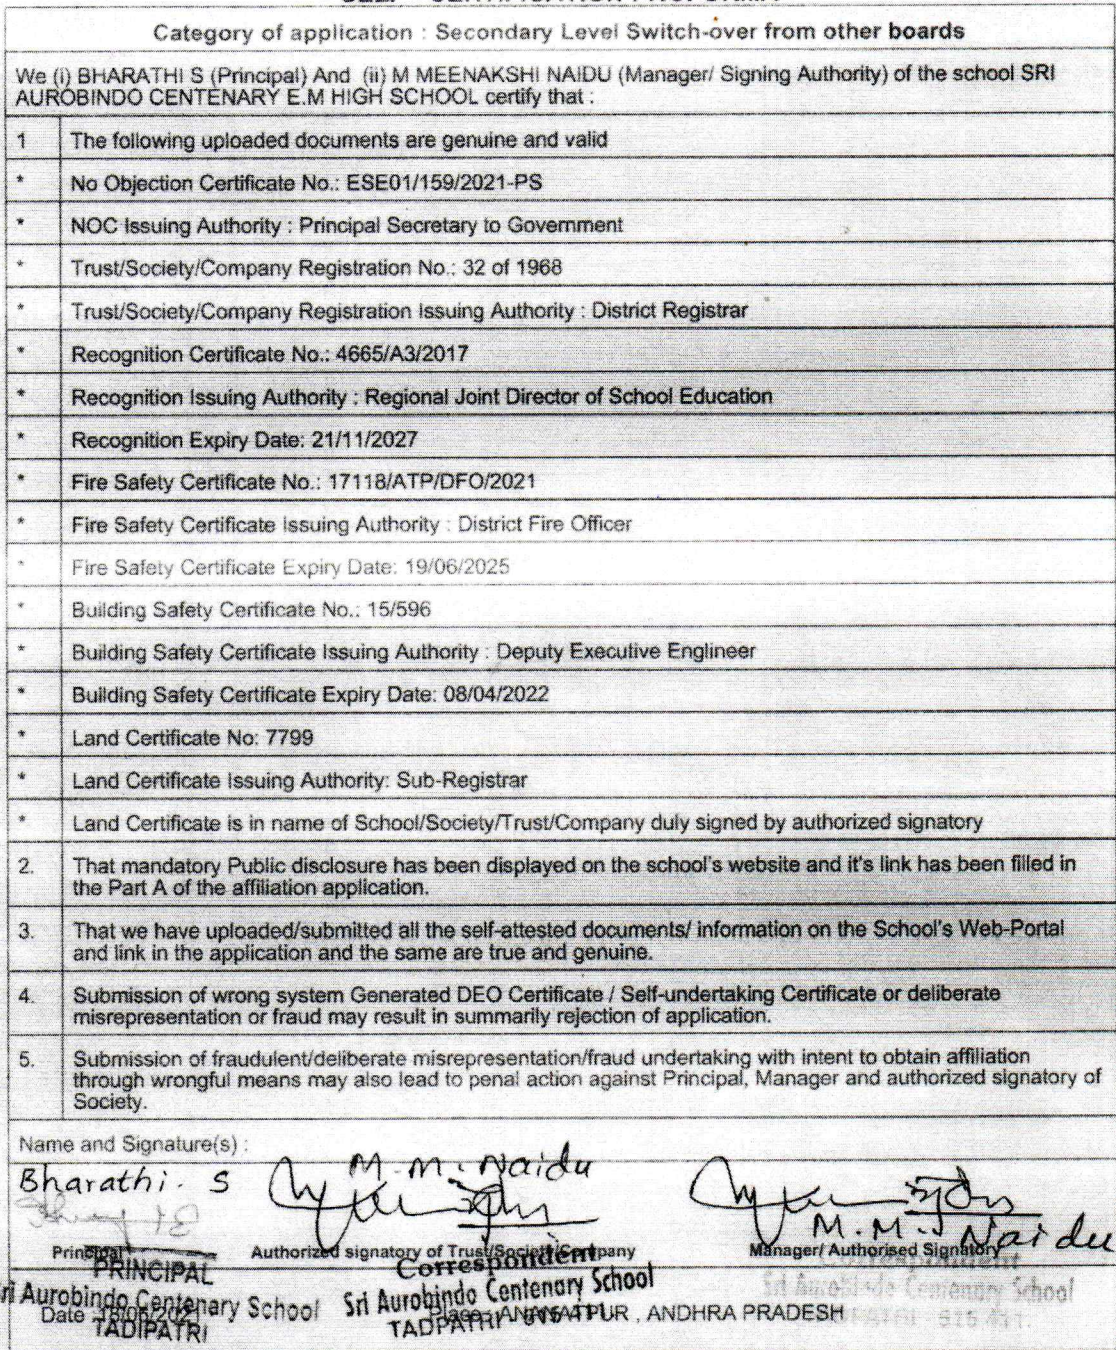 Category of application : Secondary Level Switch-over from other boards
We (i) BHARATHI S (Principal) And (ii) M MEENAKSHI NAIDU (Manager/ Signing Authority) of the school SRI
AUROBINDO CENTENARY E.M HIGH SCHOOL certify that :
1 The following uploaded documents are genuine and valid
* No Objection Certificate No.: ESE01/159/2021-PS
* NOC Issuing Authority : Principal Secretary to Government
* Trust/Society/Company Registration No.: 32 of 1968
* Trust/Society/Company Registration Issuing Authority : District Registrar
* Recognition Certificate No.: 4665/A3/2017
* Recognition Issuing Authority : Regional Joint Director of School Education
* Recognition Expiry Date: 21/11/2027
* Fire Safety Certificate No.: 17118/ATP/DFO/2021
* Fire Safety Certificate Issuing Authority : District Fire Officer
* Fire Safety Certificate Expiry Date: 19/06/2025
* Building Safety Certificate No.: 15/596
* Building Safety Certificate Issuing Authority : Deputy Executive Englineer
* Building Safety Certificate Expiry Date: 08/04/2022
* Land Certificate No: 7799
* Land Certificate Issuing Authority: Sub-Registrar
* Land Certificate is in name of School/Society/Trust/Company duly signed by authorized signatory
2. That mandatory Public disclosure has been displayed on the school's website and it's link has been filled in
the Part A of the affiliation application.
3. That we have uploaded/submitted all the self-attested documents/ information on the School's Web-Portal
and link in the application and the same are true and genuine.
4. Submission of wrong system Generated DEO Certificate / Self-undertaking Certificate or deliberate
misrepresentation or fraud may result in summarily rejection of application.
5. Submission of fraudulent/deliberate misrepresentation/fraud undertaking with intent to obtain affiliation
through wrongful means may also lead to penal action against Principal, Manager and authorized signatory of
Society.
Name and Signature(s) :
Bharathi. S M. M. Naidu
M. M. Naidu
Principal Authorized signatory of Trust/Society/Company Manager/ Authorised Signatory
PRINCIPAL Correspondent Correspondent
Sri Aurobindo Centenary School Sri Aurobindo Centenary School
Date Place: ANANATPUR , ANDHRA PRADESH
TADIPATRI TADPATRI